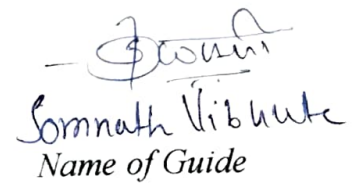 Somnath Vibhute
Name of Guide